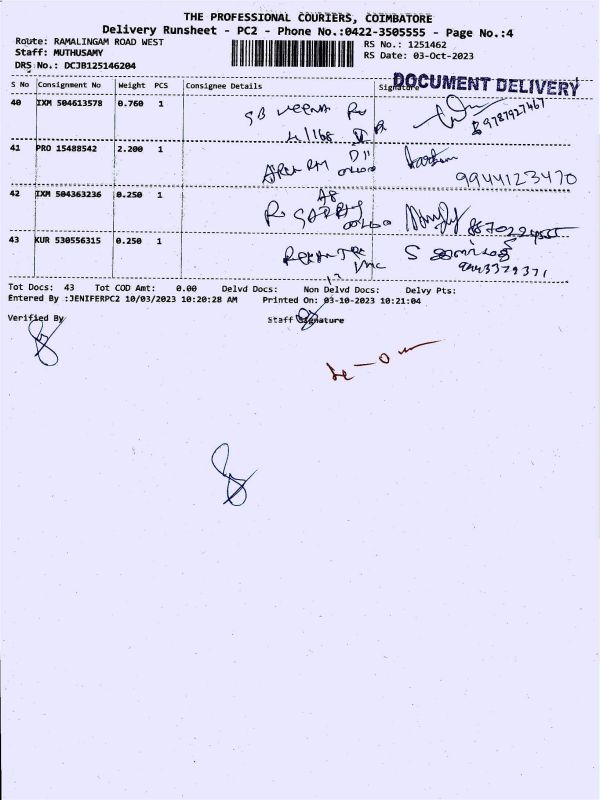 THE PROFESSIONAL COURIERS, COIMBATORE
Delivery Runsheet - PC2 - Phone No.:0422-3505555 - Page No.:4
Route: RAMALINGAM ROAD WEST
RS No.: 1251462
Staff: MUTHUSAMY
RS Date: 03-Oct-2023
DRS No.: DCJB125146204
DOCUMENT DELIVERY
S No Consignment No Weight PCS Consignee Details Signature
40 IXM 504613578 0.760 1
SB VEENA
4/168
9787927467
41 PRO 15488542 2.200 1
9944123470
42 IXM 504363236 0.250 1
43 KUR 530556315 0.250 1
9443379371
Tot Docs: 43 Tot COD Amt: 0.00 Delvd Docs: Non Delvd Docs: Delvy Pts:
Entered By :JENIFERPC2 10/03/2023 10:20:28 AM Printed On: 03-10-2023 10:21:04
Verified By Staff Signature